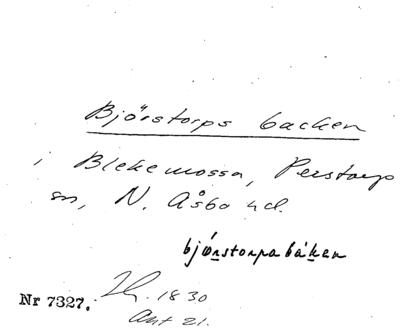 Björstorps backen
i Blekemossa, Perstorp
sn, N. Åsbo hd.
bjo̧rstorpabáken
Nr 7327. Lh. 1830
Ant 21.